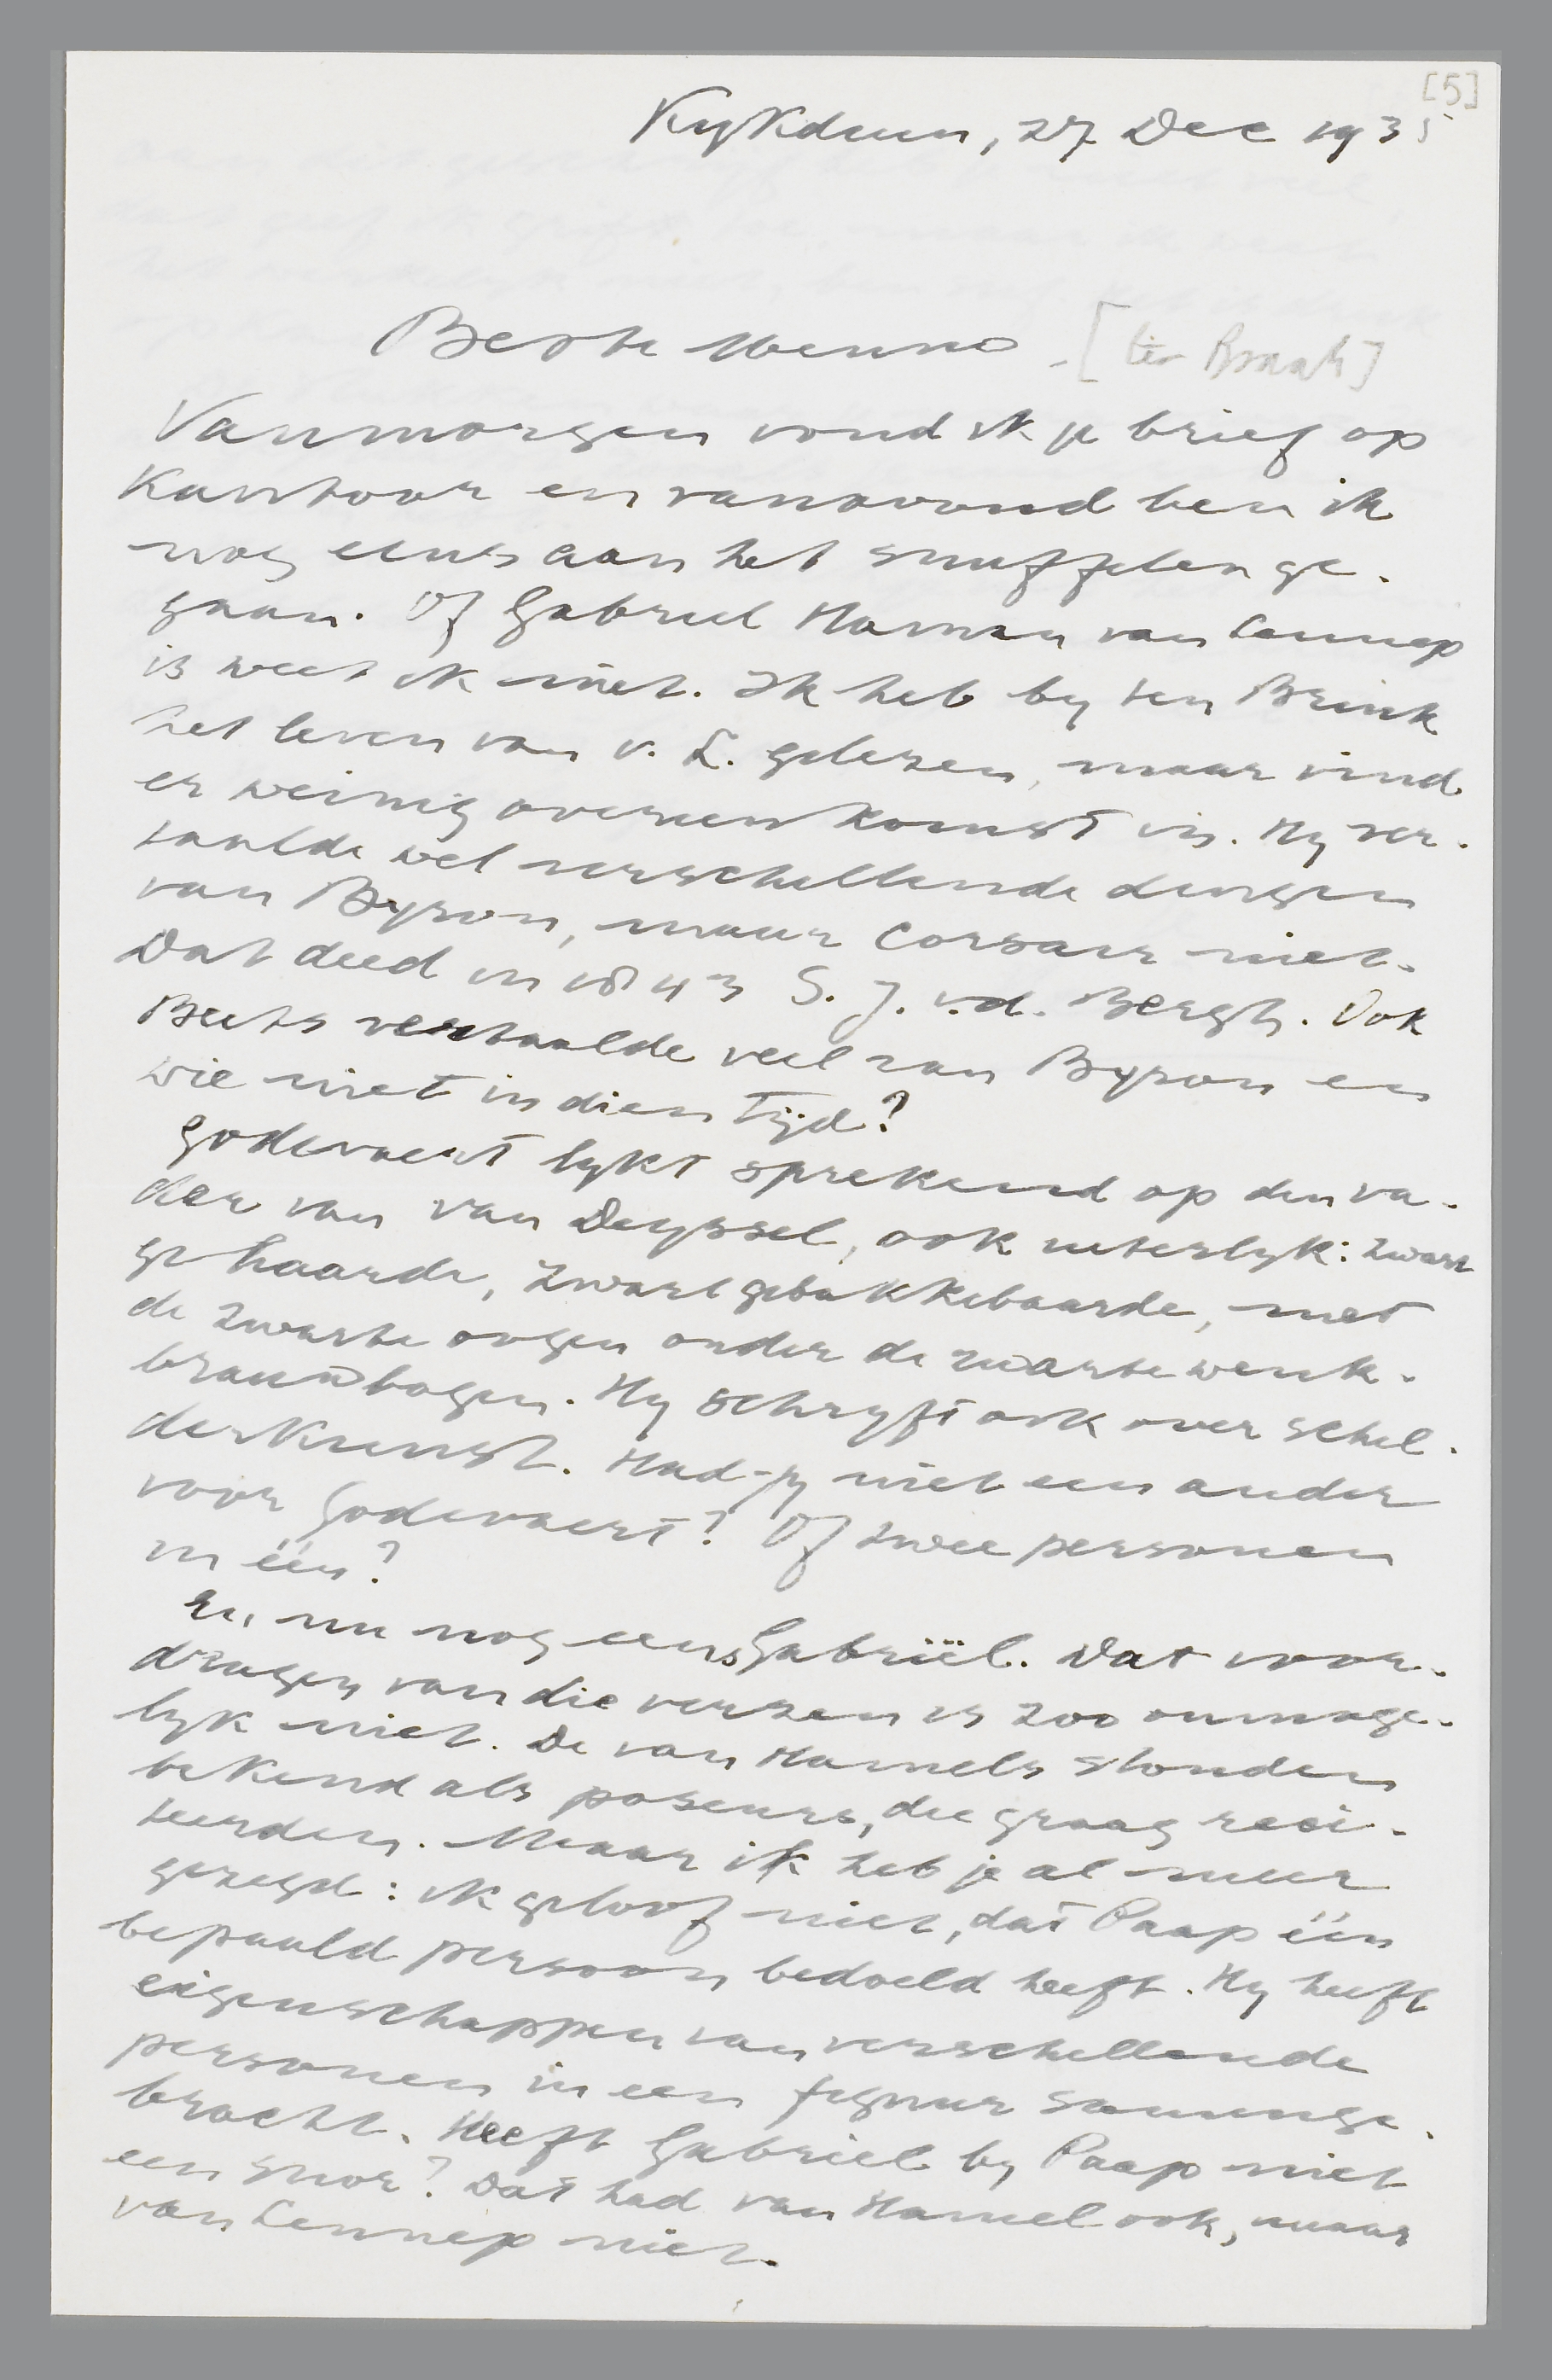 [5]
Kykduin, 27 Dec 1935
Beste Menno [ter Braak]
Vanmorgen vond ik je brief op
Kantoor en vanavond ben ik
nog eens aan het snuffelen ge-
gaan. Of Gabriel Haman van Lennep
is weet ik niet. Ik heb by ten Brink
het leven van v. L. gelezen, maar vind
er weinig overeenkomst in. Hy ver-
taalde wel verschillende dingen
van Byron, maar Corsair niet.
Dat deed in 1843 S. J. v.d. Bergh. Ook
Beets vertaalde veel van Byron en
wie niet in dien tijd?
Godevaert lykt sprekend op den va-
der van van Deyssel, ook uiterlyk: zwart
gehaarde, zwart gebakkebaarde, met
de zwarte oogen onder de zwarte wenk-
brauwbogen. Hy schryft ook over schil-
derkunst. Had-jy niet een ander
voor Godevaert? Of twee personen
in één?
En nu nog eens Gabriël. Dat voor-
dragen van die verzen is zoo onmoge-
lyk niet. De van Hamels stonden
bekend als poseurs, die graag reci-
teerden. Maar ik heb je al meer
gezegd: ik geloof niet, dat Paap één
bepaald persoon bedoeld heeft. Hy heeft
eigenschappen van verschillende
personen in een figuur samenge-
bracht. Heeft Gabriel by Paap niet
een snor? Dat had van Hamel ook, maar
van Lennep niet.